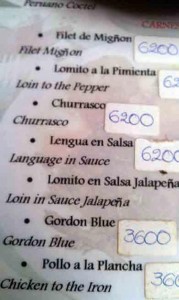 Peruano Coctel
CARNO
• Filet de Migñon
6200
Filet Migñon
• Lomito a la Pimienta
62
Loin to the Pepper
• Churrasco
6200
Churrasco
• Lengua en Salsa
6200
Language in Sauce
• Lomito en Salsa Jalapeña
Loin in Sauce Jalapeña
• Gordon Blue
3600
Gordon Blue
• Pollo a la Plancha
360
Chicken to the Iron